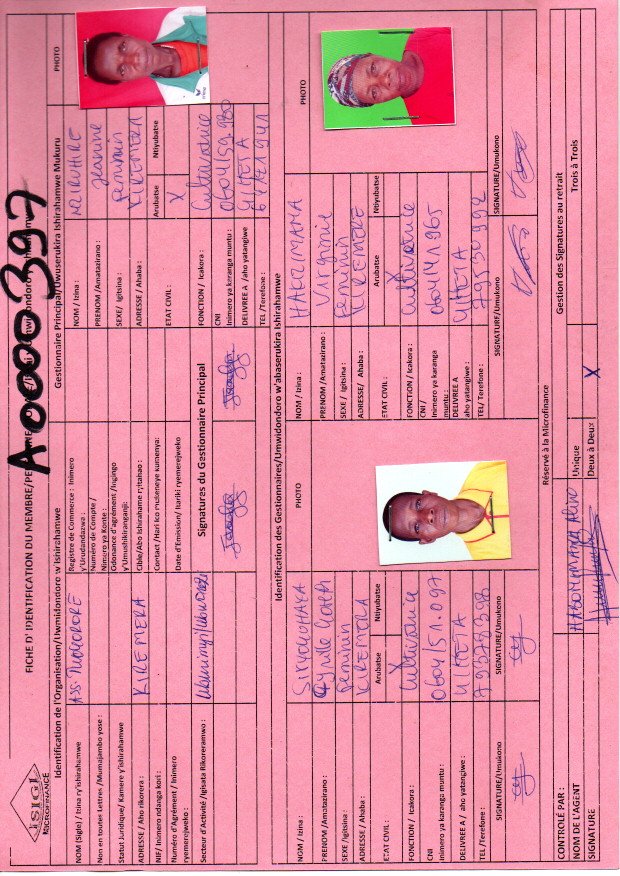 ISIGI
MICROFINANCE
A0000397
FICHE D'IDENTIFICATION DU MEMBRE/PE
Identification de l'Organisation/Umwidondoro w'Ishirahamwe
NOM (Sigle) / Izina ry'ishirahamwe
ASS. TWOROORE
Non en toutes Lettres /Mumajambo yose :
Statut Juridique/ Kamere y'ishirahamwe
ADRESSE / Aho rikorera :
KIREMERA
NIF/ Inomero ndanga kori :
Numéro d'Agrément / Inimero
ryemerejweko :
Secteur d'Activité /Igisata Rikoreramwo :
Registre de Commerce : Inimero
y'Urudandazwa :
Numéro de Compte /
Nimuro ya Konte :
Odonance d'agrément /Ingingo
y'Umushikiranganji:
Cible/Abo Ishirahamwe ryitaho :
Contact /Hari ico mutseneye kumenya:
Date d'Emission/ Isariki ryemerejweko
Signatures du Gestionnaire Principal
Gestionnaire Principal/Uwuserukira Ishirahamwe Mukuru
PHOTO
NOM / Izina :
PRENOM /Amatazirano :
Jeanine
SEXE/ Igitsina :
Feminin
ADRESSE / Ahaba :
KIREMERA
ETAT CIVIL :
Arubatse
Ntiyubatse
X
FONCTION / Icakora :
Cultivatrice
CNI
Inimero ya karanga muntu :
0604/59.980
DELIVREE A /aho yatangiwe
GIHETA
TEL /Terefone :
Identification des Gestionnaires/Umwidondoro w'abaserukira Ishirahamwe
NOM / Izina :
PHOTO
PRENOM/Amatazirano :
SEXE /Igitsina :
Feminin
ADRESSE / Ahaba :
KIREMERA
ETAT CIVIL :
Arubatse
Ntiyubatse
X
FONCTION / Icakora :
Cultivatrice
CNI
Inimero ya karanga muntu :
0604/51.097
DELIVREE A / aho yatangiwe :
GIHETA
TEL /Terefone :
79379398
SIGNATURE/Umukono
SIGNATURE/Umukono
NOM / Izina :
HAKIZIMANA
PHOTO
PRENOM /Amatazirano :
Virginie
SEXE / Igitsina :
Feminin
ADRESSE/ Ahaba :
KIREMERE
ETAT CIVIL :
Arubatse
Ntiyubatse
X
FONCTION / Icakora :
Cultivatrice
CNI /
Inimero ya karanga
muntu :
0604/41965
DELIVREE A
aho yatangiwe :
GIHETA
TEL/ Terefone :
79530992
SIGNATURE/Umukono
SIGNATURE/Umukono
Réservé à la Microfinance
CONTROLÉ PAR :
NOM DE L'AGENT
HABONIMANA Aline
SIGNATURE
Gestion des Signatures au retrait
Unique
Deux à Deux
X
Trois à Trois